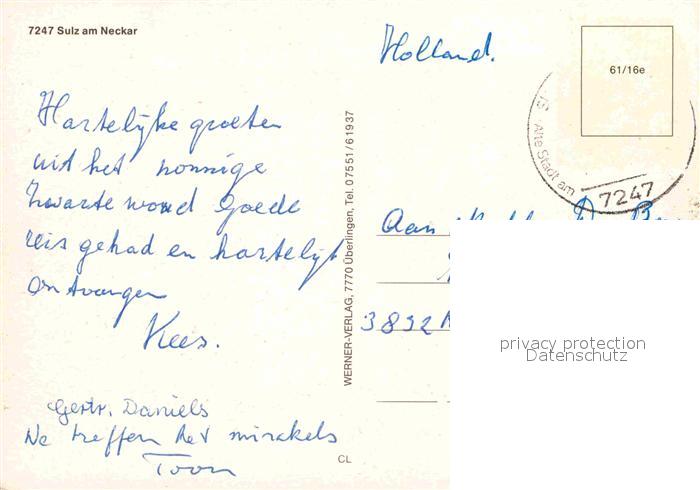 7247 Sulz am Neckar
Holland.
61/16e
Alte Stadt am
7247
Hartelijke groeten
uit het zonnige
Zwarte woud Goede
reis gehad en hartelijk
ontvangen
Kees.
Gertr. Daniels
We treffen het mirakels
Toon
WERNER-VERLAG, 7770 Überlingen, Tel. 07551/61937
CL
Aan
3832
privacy protection
Datenschutz